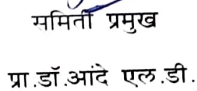 समिती प्रमुख
प्रा.डॉ.आंदे एल.डी.